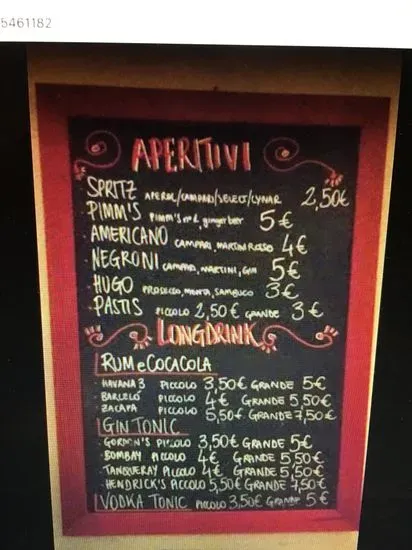 5461182
APERITIVI
SPRITZ APEROL/CAMPARI/SELECT/CYNAR 2,50€
PIMM'S PIMM'S n°1, gingerbeer 5€
AMERICANO CAMPARI, MARTINI ROSSO 4€
NEGRONI CAMPARI, MARTINI, GIN 5€
HUGO PROSECCO, MENTA, SAMBUCO 3€
PASTIS PICCOLO 2,50€ GRANDE 3€
LONGDRINK
RUM e COCACOLA
- HAVANA 3 PICCOLO 3,50€ GRANDE 5€
- BARCELO PICCOLO 4€ GRANDE 5,50€
- ZACAPA PICCOLO 5,50€ GRANDE 7,50€
GIN TONIC
- GORDON'S PICCOLO 3,50€ GRANDE 5€
- BOMBAY PICCOLO 4€ GRANDE 5,50€
- TANQUERAY PICCOLO 4€ GRANDE 5,50€
- HENDRICK'S PICCOLO 5,50€ GRANDE 7,50€
VODKA TONIC PICCOLO 3,50€ GRANDE 5€